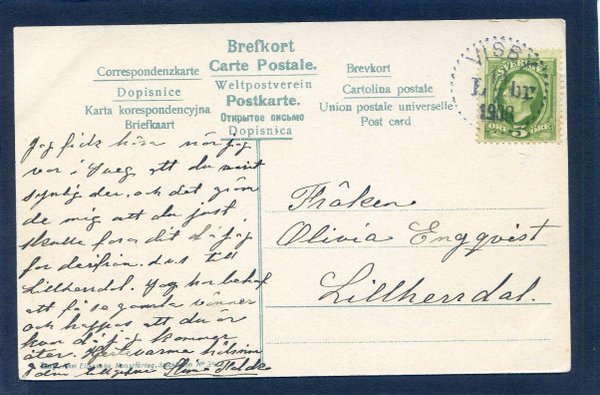 Brefkort
Carte Postale.
Correspondenzkarte
Weltpostverein
Brevkort
Dopisnice
Postkarte.
Cartolina postale
Karta korespondencyjna
Открытое письмо
Union postale universelle
Briefkaart
Dopisnica
Post card
VISBY
L br
SVERIGE
5 ÖRE ÖRE
Jag fick höra när jag
var i Sveg att du varit
synlig der, och det gräm
de mig att du just
skulle fara dit då jag
for derifrån. d.v.s. till
Lillherrdal. Jag har behof
att få se gamla vänner
och hoppas att du är
då jag kommer
åter. Hjertevarma hälsnin
Fröken
Olivia Engqvist
Lillherrdal.